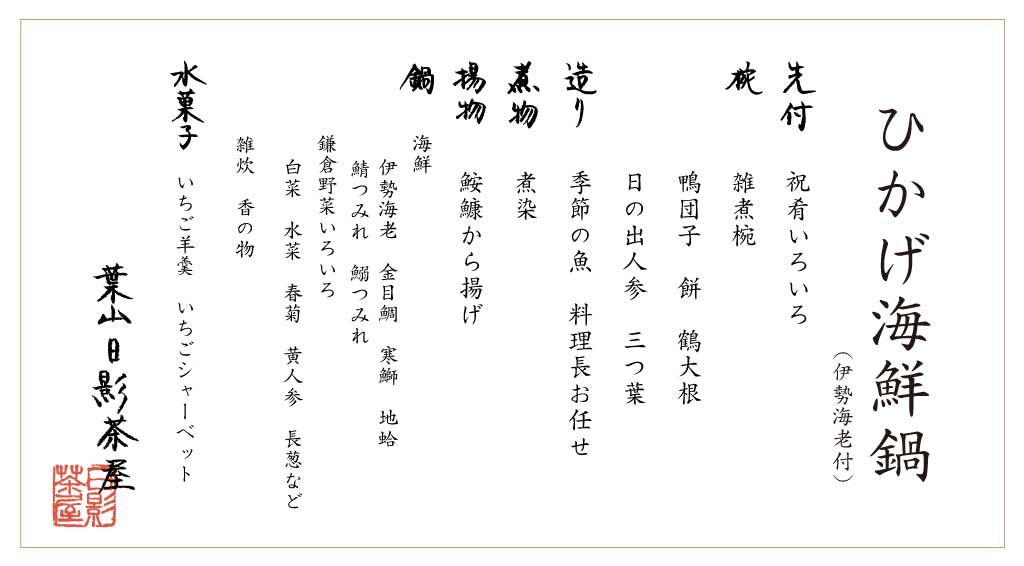 ひかげ海鮮鍋
(伊勢海老付)
先付 祝肴いろいろ
椀 雑煮椀
鴨団子 餅 鶴大根
日の出人参 三つ葉
造り 季節の魚 料理長お任せ
煮物 煮染
揚物 鮟鱇から揚げ
鍋 海鮮
伊勢海老 金目鯛 寒鰤 地蛤
鯖つみれ 鰯つみれ
鎌倉野菜いろいろ
白菜 水菜 春菊 黄人参 長葱など
雑炊 香の物
水菓子 いちご羊羹 いちごシャーベット
葉山日影茶屋
日影茶屋